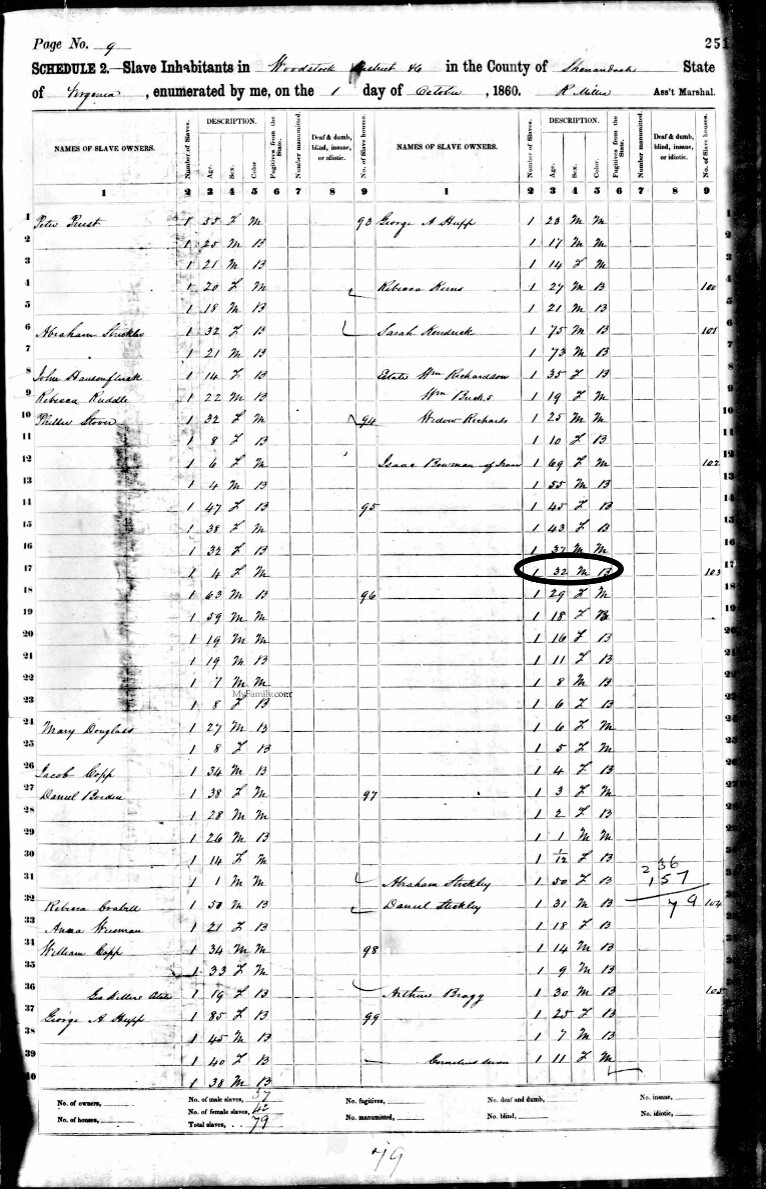 Page No. 9
251
SCHEDULE 2.—Slave Inhabitants in Woodstock District #6 in the County of Shenandoah State
of Virginia, enumerated by me, on the 1 day of October, 1860. R Miller Ass't Marshal.
NAMES OF SLAVE OWNERS. Number of Slaves. DESCRIPTION. Age. Sex. Color Fugitives from the State. Number manumitted. Deaf & dumb, blind, insane, or idiotic. No. of Slave houses. NAMES OF SLAVE OWNERS. Number of Slaves. DESCRIPTION. Age. Sex. Color. Fugitives from the State. Number manumitted. Deaf & dumb, blind, insane, or idiotic. No. of Slave houses.
1 2 3 4 5 6 7 8 9 1 2 3 4 5 6 7 8 9
1 Peter 1 55 F M 93 George A Hupp 1 23 M M 1
2 1 25 M B 1 17 M M 2
3 1 21 M B 1 14 F M 3
4 1 20 F M Rebecca Kerns 1 27 M B 100 4
5 1 18 M B 1 21 M B 5
6 Abraham 1 32 F B Sarah Kendrick 1 75 M B 101 6
7 1 21 M B 1 73 M B 7
8 John 1 14 F B Estate Wm Richardson 1 35 F B 8
9 Rebecca Ruddle 1 22 M B Wm 1 19 F M 9
10 Stover 1 32 F M 94 Widow Richards 1 25 M M 10
11 1 8 F B 1 10 F B 11
12 1 6 F M Isaac Bowman of Isaac 1 69 F M 102 12
13 1 4 M B 1 55 M B 13
14 1 47 F B 95 1 45 F B 14
15 1 38 F M 1 43 F B 15
16 1 32 F B 1 37 M M 16
17 1 4 F M 1 32 M B 103 17
18 1 63 M B 96 1 29 F M 18
19 1 59 M M 1 18 F B 19
20 1 19 M M 1 16 F B 20
21 1 19 M B 1 11 F B 21
22 1 7 M M 1 8 M B 22
MyFamily.com
23 1 8 F B 1 6 F B 23
24 Mary Douglass 1 27 M B 1 6 F M 24
25 1 8 F B 1 5 F M 25
26 Jacob Copp 1 34 M B 1 4 F B 26
27 Daniel Borden 1 38 F M 97 1 3 F M 27
28 1 28 M M 1 2 F B 28
29 1 26 M B 1 1 M M 29
30 1 14 F M 1 1/12 F B 30
2 36
31 1 1 M M Abraham Stickley 1 50 F B 157 31
32 Rebecca 1 50 M B Daniel Stickley 1 31 M B 79 104 32
33 Anna Wisman 1 21 F B 1 18 F B 33
34 William Copp 1 34 M M 98 1 14 M B 34
35 1 33 F M 1 9 M B 35
36 Geo Estate 1 19 F B Arthur Bragg 1 30 M B 105 36
37 George A Hupp 1 85 F B 99 1 25 F B 37
38 1 45 M B 1 7 M B 38
39 1 40 F B Cornelius 1 11 F M 39
40 1 38 M B
No. of owners, No. of male slaves, 37 No. fugitives, No. deaf and dumb, No. insane,
No. of houses, No. of female slaves, 42 No. manumitted, No. blind, No. idiotic,
Total slaves, 79
79